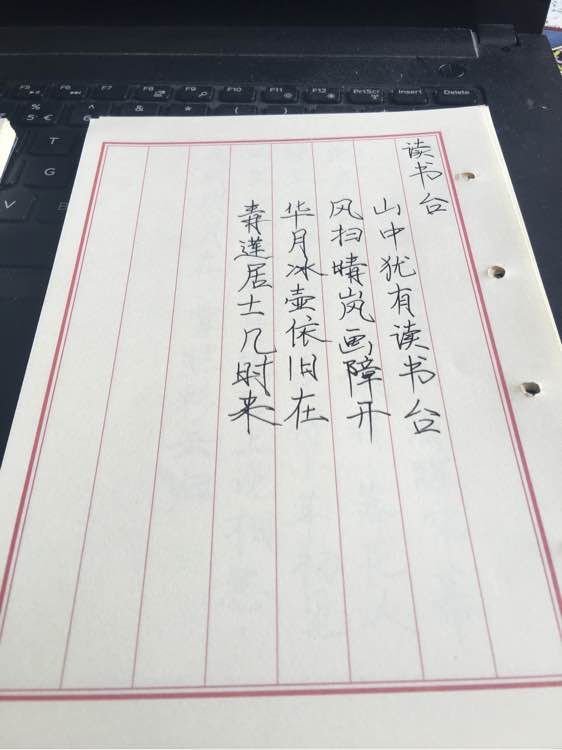 读书台
山中犹有读书台
风扫晴岚画障开
华月冰壶依旧在
青莲居士几时来
F5
F6
F7
F8
F9
F10
F11
F12
PrtScr
Insert
Delete
%
5 €
^
6
&
*
(
)
T
G
V
B